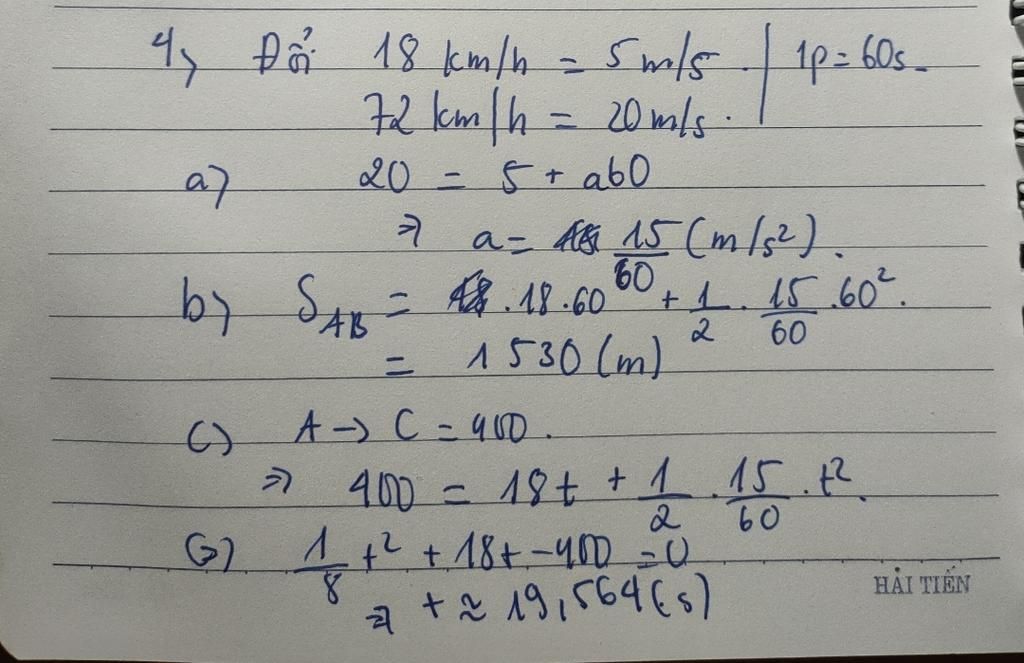 4, Đổi 18 km/h = 5 m/s. | 1p = 60s.
72 km/h = 20 m/s.
a) 20 = 5 + a60
⇒ a = 15/60 (m/s²).
b) S_AB = .18.60 + 1/2 . 15/60 .60².
= 1530 (m)
c) A → C = 400.
⇒ 400 = 18t + 1/2 . 15/60 . t².
⇔ 1/8 t² + 18t - 400 = 0
⇒ t ≈ 19,564 (s)
HẢI TIẾN